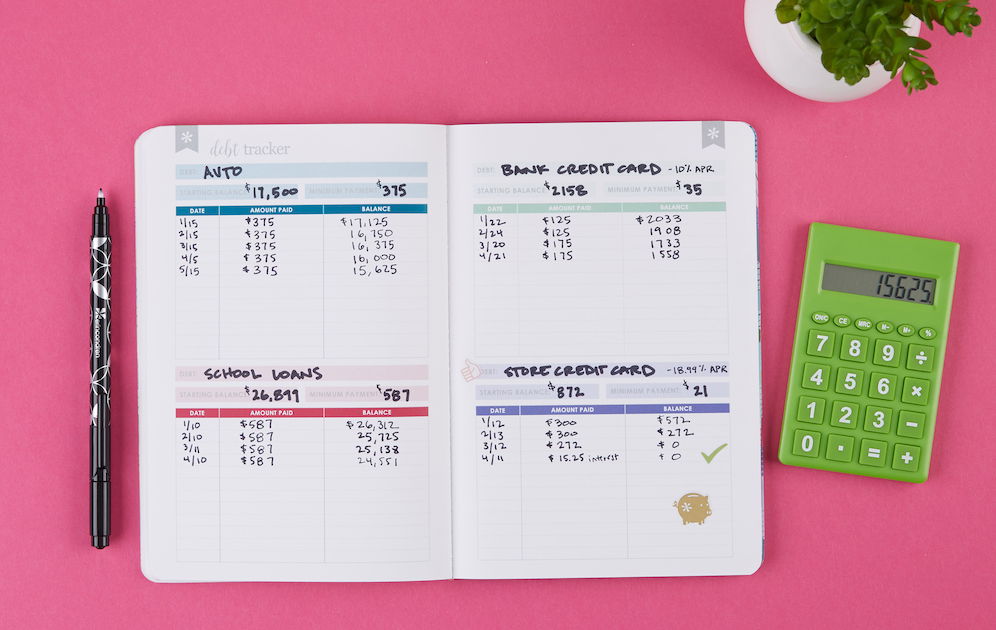 debt tracker
DEBT: AUTO
STARTING BALANCE: $17,500 MINIMUM PAYMENT: $375
DATE AMOUNT PAID BALANCE
1/15 $375 $17,125
2/15 $375 16,750
3/15 $375 16,375
4/5 $375 16,000
5/15 $375 15,625
DEBT: SCHOOL LOANS
STARTING BALANCE: $26,899 MINIMUM PAYMENT: $587
DATE AMOUNT PAID BALANCE
1/10 $587 $26,312
2/10 $587 25,725
3/11 $587 25,138
4/10 $587 24,551
DEBT: BANK CREDIT CARD - 10% APR
STARTING BALANCE: $2158 MINIMUM PAYMENT: $35
DATE AMOUNT PAID BALANCE
1/22 $125 $2033
2/24 $125 1908
3/20 $175 1733
4/21 $175 1558
DEBT: STORE CREDIT CARD - 18.99% APR
STARTING BALANCE: $872 MINIMUM PAYMENT: $21
DATE AMOUNT PAID BALANCE
1/12 $300 $572
2/13 $300 $272
3/12 $272 $0
4/11 $15.25 interest $0
erincondren
15625.
ON/C CE MRC M- M+ %
7 8 9 ÷
4 5 6 ×
1 2 3 −
0 . = +